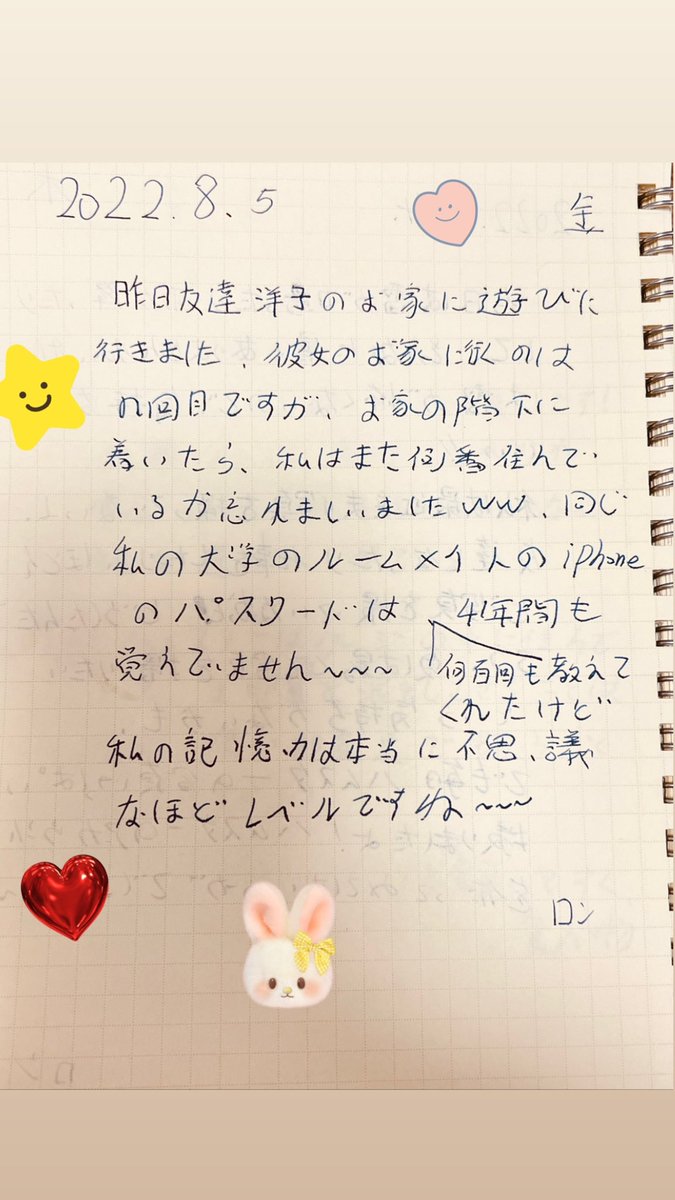 2022.8.5 金
昨日友達洋子のお家に遊びに
行きました、彼女のお家に行くのは
n回目ですが、お家の階下に
着いたら、私はまた何番住んで
いるか忘れましいましたww、同じ
私の大学のルームメイトのiphone
のパスワードは 4年間も
覚えていません~~~ 何百回も教えて
くれたけど
私の記憶力は本当に不思議
なほどレベルですね~~~
ロン